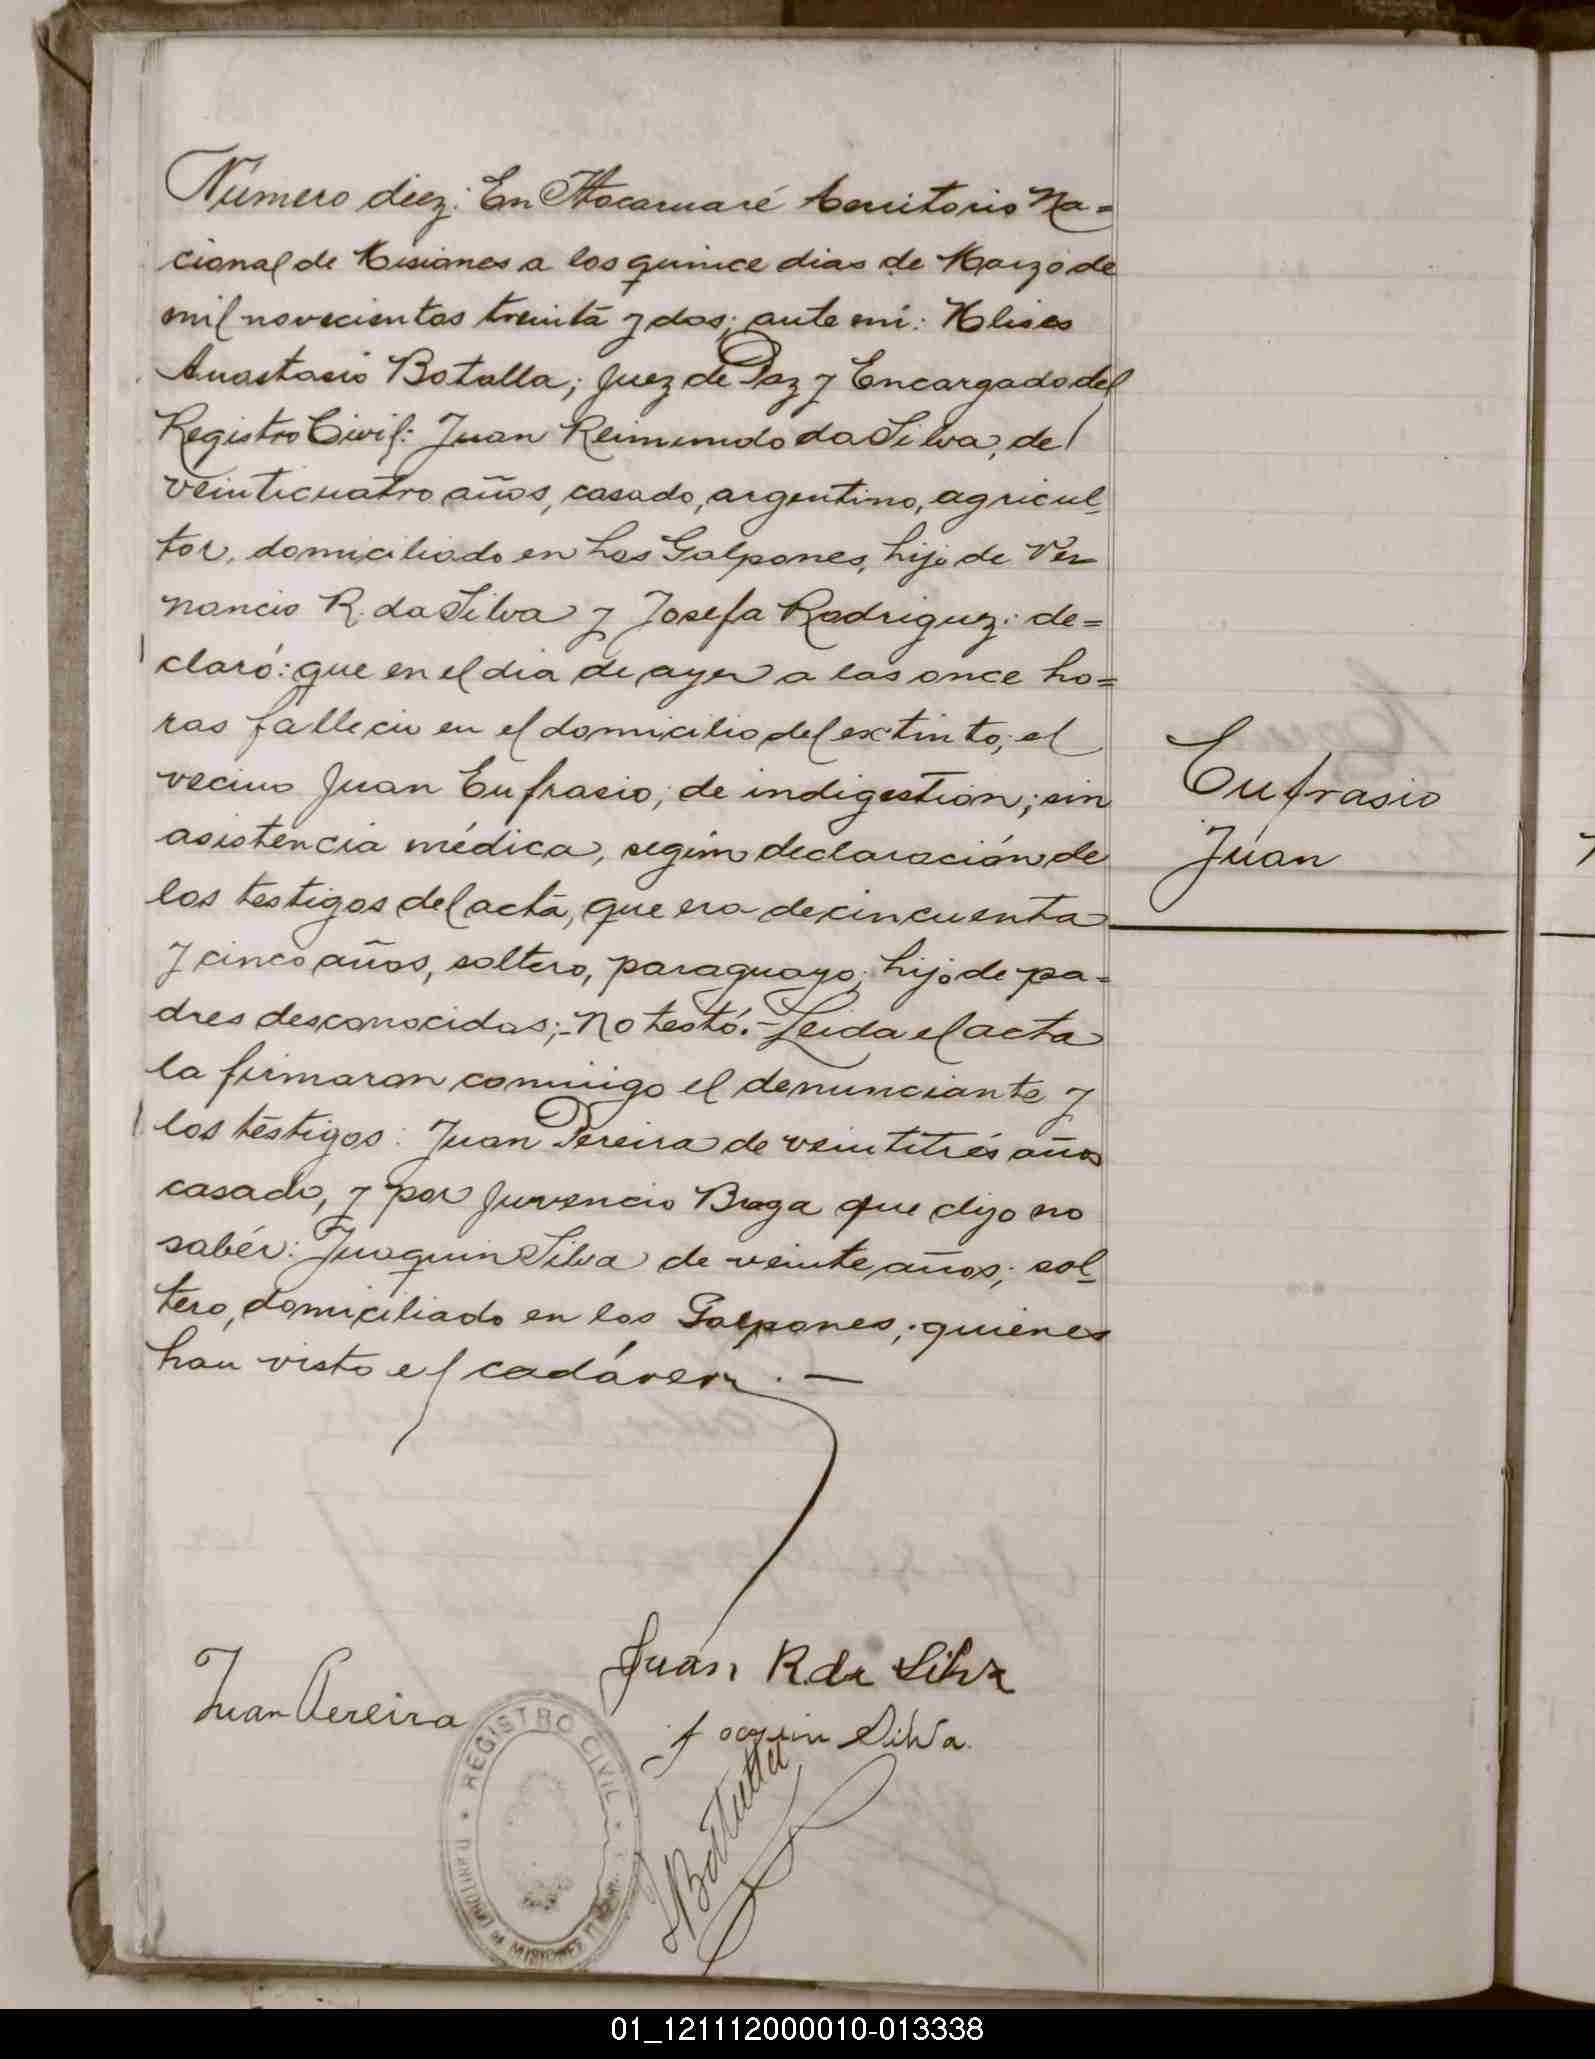 Número diez: En Itacaruaré territorio Na=
cional de Misiones a los quince dias de Marzo de
mil novecientos treinta y dos; ante mi: Ulises
Anastasio Batalla; Juez de Paz y Encargado del
Registro Civil: Juan Reimundo da Silva, de
veinticuatro años, casado, argentino, agricul-
tor, domiciliado en Los Galpones, hijo de Ve-
nancio R. da Silva y Josefa Rodriguez: de=
claró: que en el dia de ayer a las once ho=
ras falleció en el domicilio del extinto; el
vecino Juan Eufrasio; de indigestión; sin
asistencia médica, según declaración de
los testigos del acta, que era de cincuenta
y cinco años, soltero, paraguayo; hijo de pa-
dres desconocidos;- No testó.- Leida el acta
la firmaron conmigo el denunciante y
los testigos: Juan Pereira de veintitrés años
casado, y por Juvencio Braga que dijo no
sabér: Juaquin Silva de veinte años; sol-
tero, domiciliado en los Galpones; quienes
han visto el cadáver. —
Eufrasio
Juan
Juan R. da Silva
Juan Pereira
Joaquin Silva
REGISTRO CIVIL
MISIONES
01_121112000010-013338